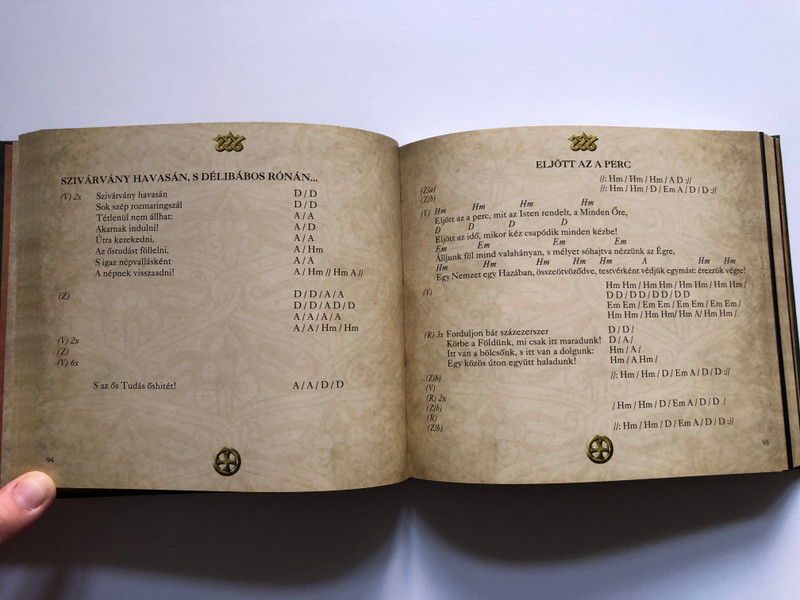 SZIVÁRVÁNY HAVASÁN, S DÉLIBÁBOS RÓNÁN...
(V) 2x Szivárvány havasán D / D
Sok szép rozmaringszál D / D
Tétlenül nem állhat: A / A
Akarnak indulni! A / D
Útra kerekedni, A / A
Az őstudást föllelni, A / Hm
S igaz népvallásként A / A
A népnek visszaadni! A / Hm // Hm A //
(Z) D / D / A / A
D / D / A D / D
A / A / A / A
A / A / Hm / Hm
(V) 2x
(Z)
(V) 6x
S az ős Tudás őshitét! A / A / D / D
94
ELJÖTT AZ A PERC
(Z/a) //: Hm / Hm / Hm / A D ://
(Z/b) //: Hm / Hm / D / Em A / D / D ://
(V) Hm Hm Hm Hm
Eljött az a perc, mit az Isten rendelt, a Minden Őre,
D D D D
Eljött az idő, mikor kéz csapódik minden kézbe!
Em Em Em Em
Álljunk föl mind valahányan, s mélyet sóhajtva nézzünk az Égre,
Hm Hm Hm Hm A Hm Hm
Egy Nemzet egy Hazában, összeötvöződve, testvérként védjük egymást: érezzük végre!
(V) Hm Hm / Hm Hm / Hm Hm / Hm Hm /
D D / D D / D D / D D
Em Em / Em Em / Em Em / Em Em /
Hm Hm / Hm Hm/ Hm A/ Hm Hm /
(R) 3x Forduljon bár százezerszer D / D /
Körbe a Földünk, mi csak itt maradunk! D / A /
Itt van a bölcsőnk, s itt van a dolgunk: Hm / A /
Egy közös úton együtt haladunk! Hm / A Hm /
(Z/b) //: Hm / Hm / D / Em A / D / D ://
(V)
(R) 2x
(Z/b) / Hm / Hm / D / Em A / D / D /
(R)
(Z/b) //: Hm / Hm / D / Em A / D / D ://